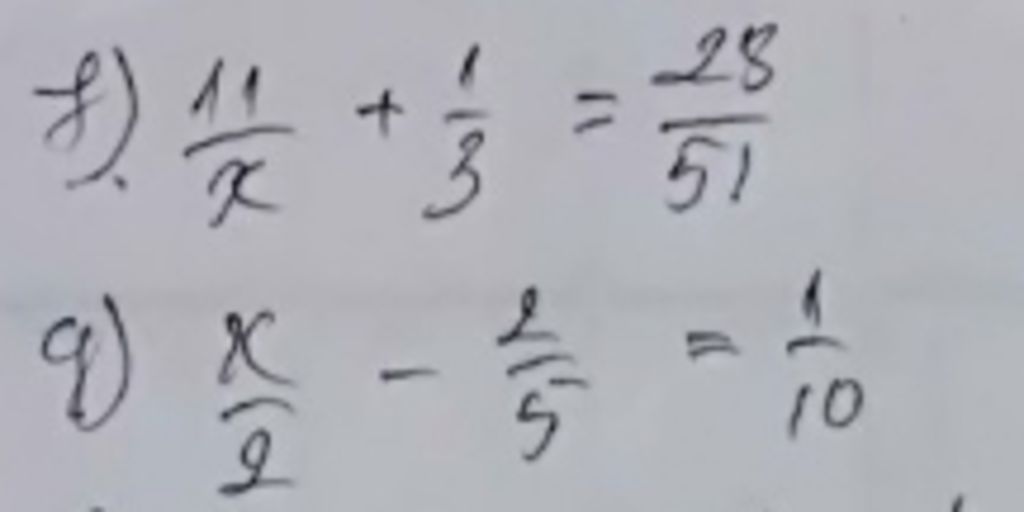 f) 11/x + 1/3 = 28/51
g) x/2 - 2/5 = 1/10